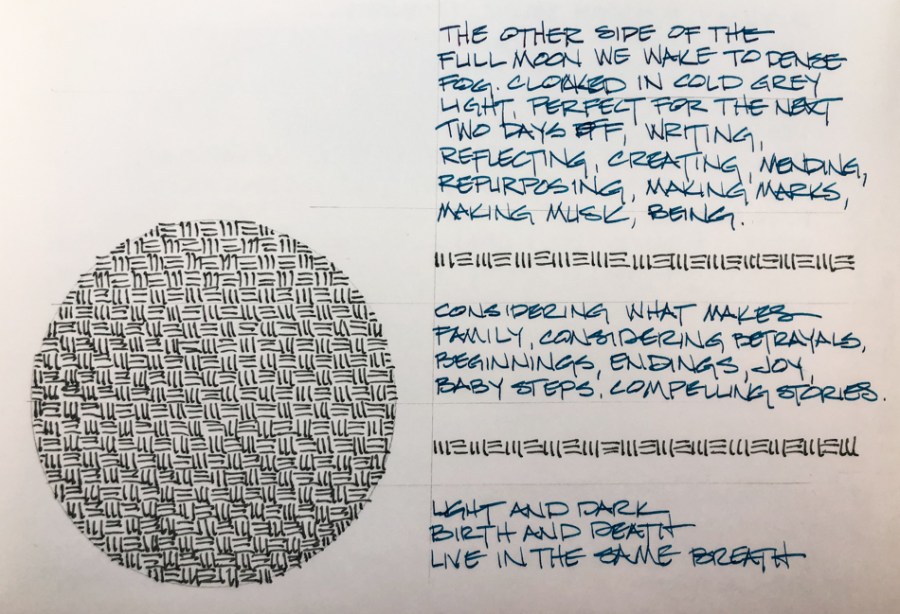 THE OTHER SIDE OF THE
FULL MOON WE WAKE TO DENSE
FOG. CLOAKED IN COLD GREY
LIGHT. PERFECT FOR THE NEXT
TWO DAYS OFF, WRITING,
REFLECTING, CREATING, MENDING,
REPURPOSING, MAKING MARKS,
MAKING MUSIC, BEING.
CONSIDERING WHAT MAKES
FAMILY, CONSIDERING BETRAYALS,
BEGINNINGS, ENDINGS, JOY,
BABY STEPS. COMPELLING STORIES.
LIGHT AND DARK
BIRTH AND DEATH
LIVE IN THE SAME BREATH